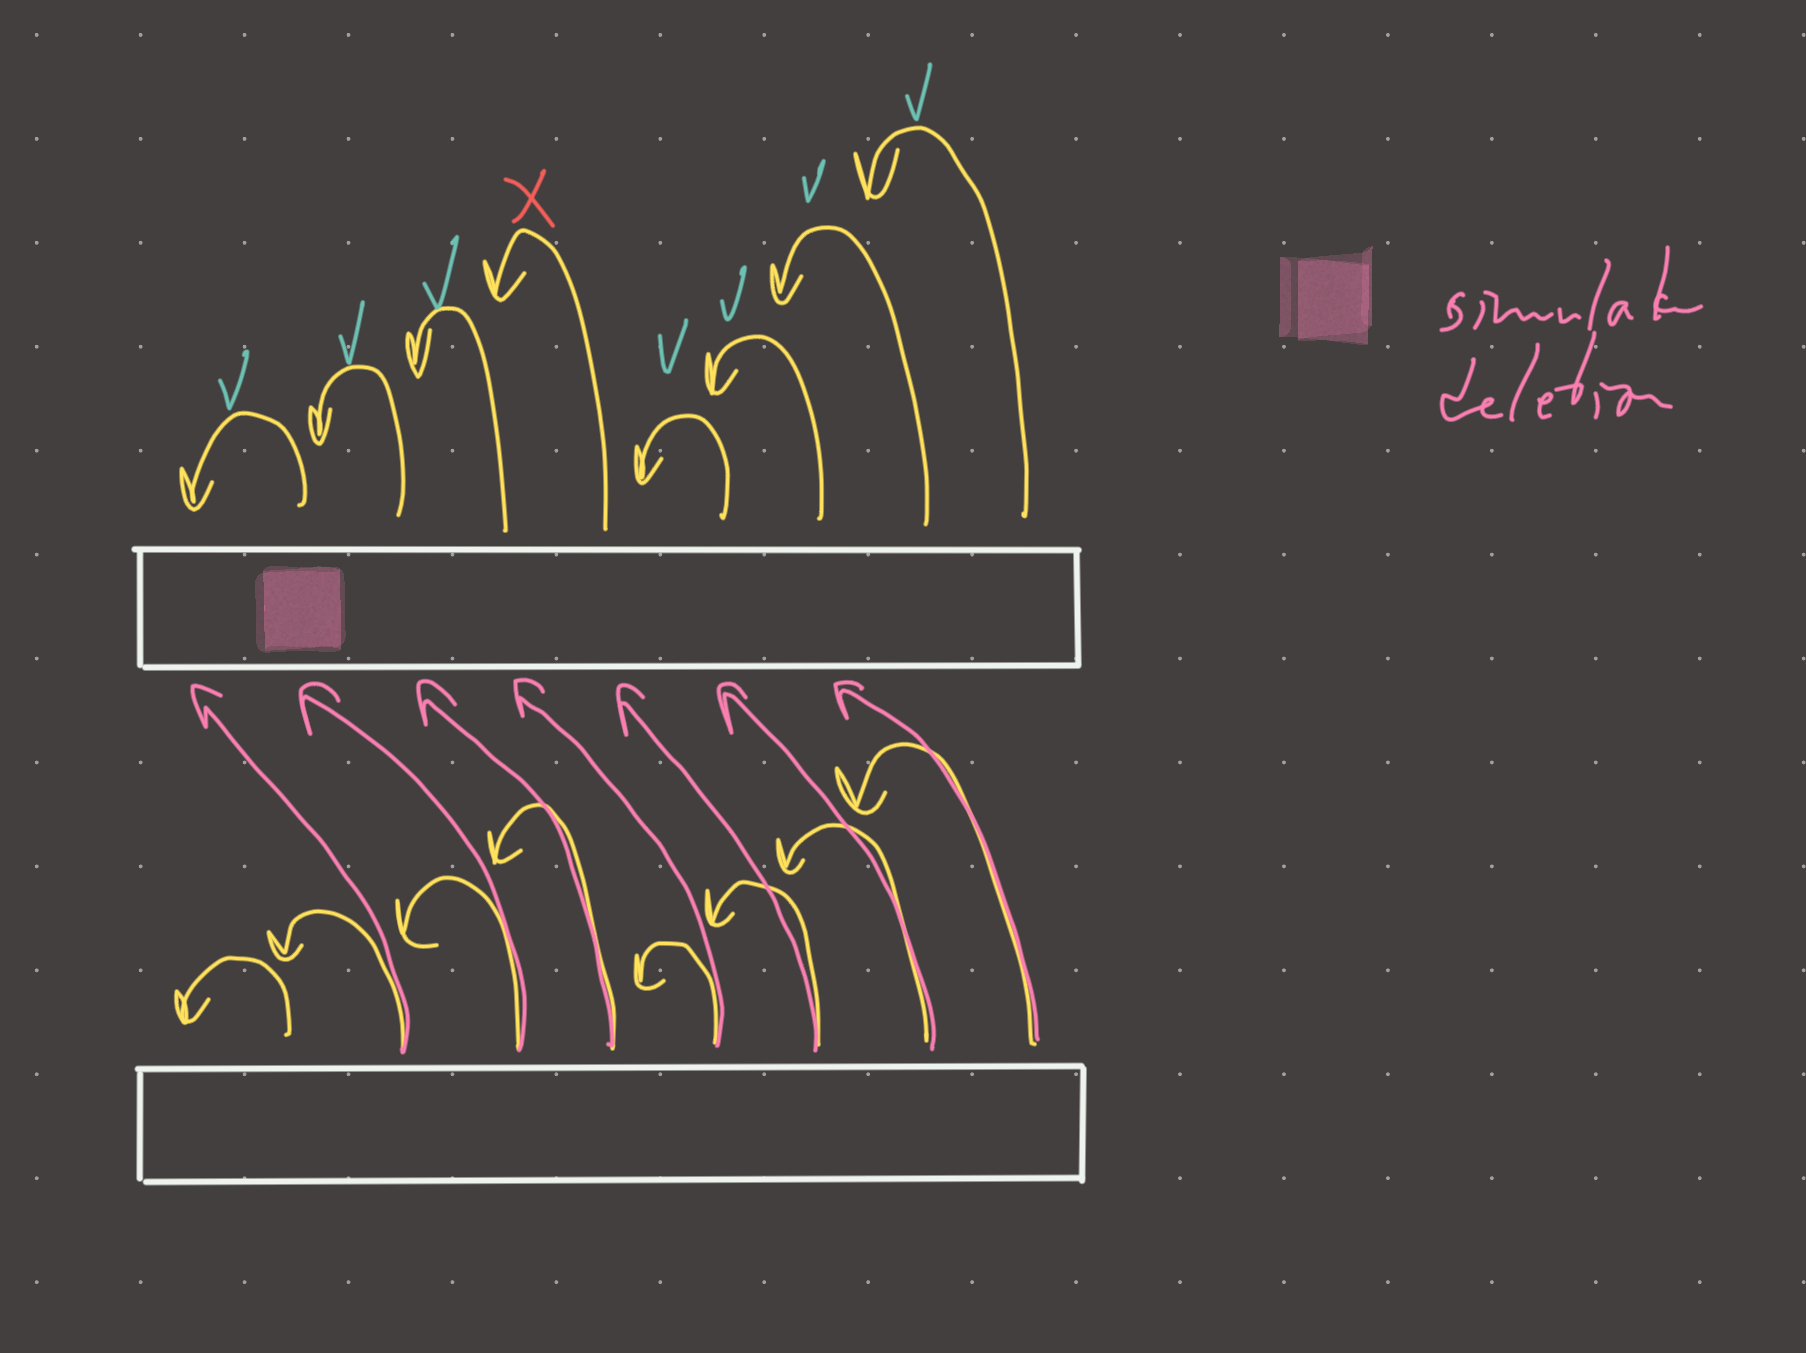 simulate
deletion